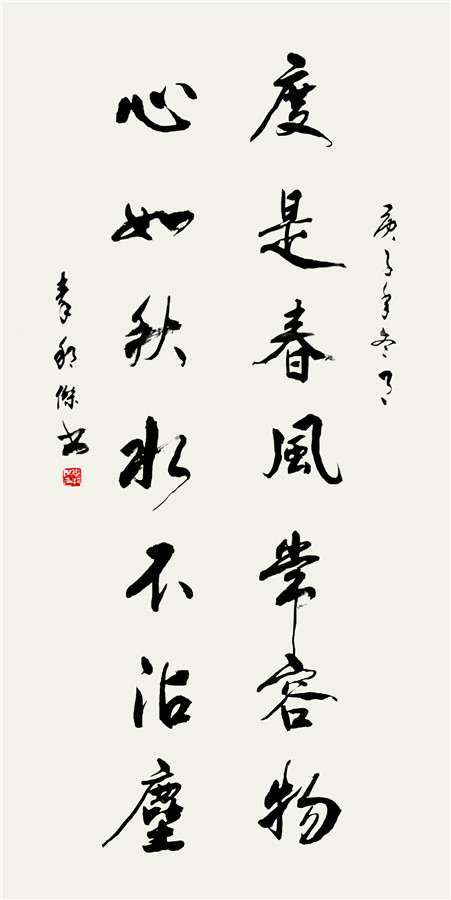 庚子年冬月
度是春風常容物
心如秋水不沾塵
傑书